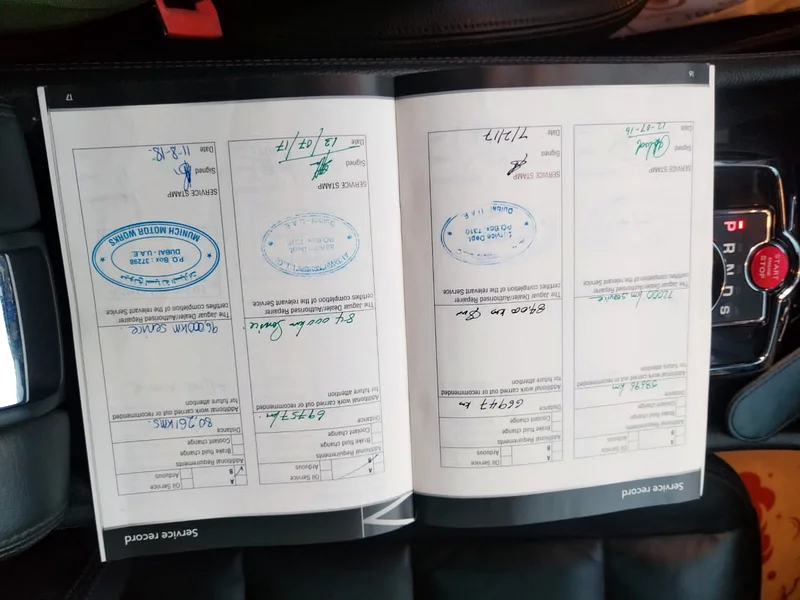 Service record
Oil Service
Additional Requirements
Brake fluid change
Coolant change
Distance
Additional work carried out or recommended
for future attention
72000 km service
The Jaguar Dealer/Authorised Repairer
certifies completion of the relevant Service.
SERVICE STAMP
Signed
Date
12-07-16
16
A
B
Oil Service
Arduous
Additional Requirements
Brake fluid change
Coolant change
Distance
66947 km
Additional work carried out or recommended
for future attention
The Jaguar Dealer/Authorised Repairer
certifies completion of the relevant Service.
Service Dept
P.O.Box 7310
Dubai U.A.E
SERVICE STAMP
Signed
Date
7/2/17
Service record
A
B
Oil Service
Arduous
Additional Requirements
Brake fluid change
Coolant change
Distance
80261 KMS.
Additional work carried out or recommended
for future attention
96000KM SERVICE
The Jaguar Dealer/Authorised Repairer
certifies completion of the relevant Service.
P.O. Box: 37298
DUBAI - U.A.E.
MUNICH MOTOR WORKS
SERVICE STAMP
Signed
Date
11-8-18
17
A
B
Oil Service
Arduous
Additional Requirements
Brake fluid change
Coolant change
Distance
69757 km
Additional work carried out or recommended
for future attention
84,000 km Service
The Jaguar Dealer/Authorised Repairer
certifies completion of the relevant Service.
Service Dept
P.O.Box 7310
Dubai - U.A.E
SERVICE STAMP
Signed
Date
12/07/17
P
R
N
D
S
START
ENGINE
STOP